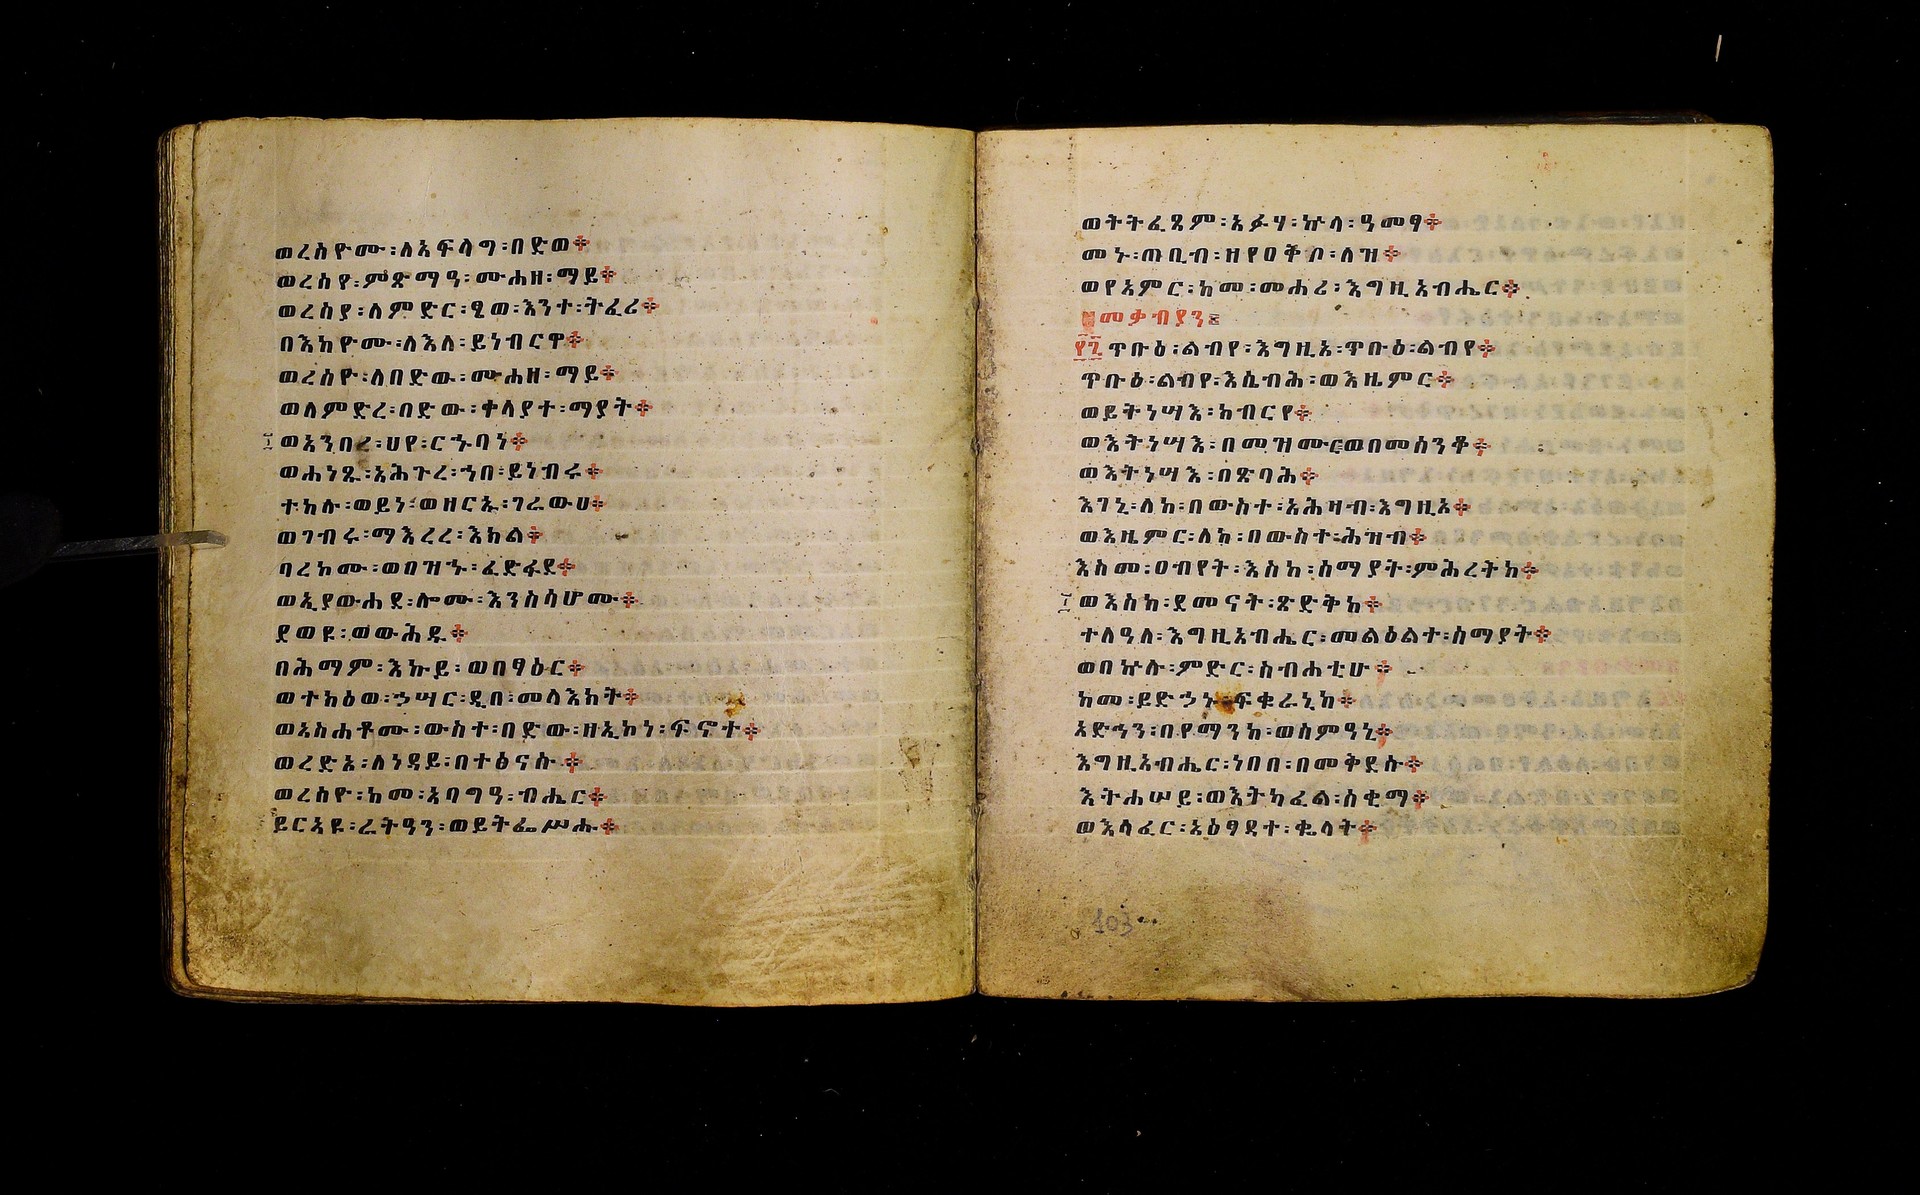 ወረስዮሙ፡ለአፍላግ፡በድወ፨
ወረስየ፡ምጽማዓ፡ሙሐዘ፡ማይ፨
ወረስያ፡ለምድር፡ፄወ፡እንተ፡ትፈሪ፨
በእከዮሙ፡ለእለ፡ይነብርዋ፨
ወረስዮ፡ለበድው፡ሙሐዘ፡ማይ፨
ወለምድረ፡በድው፡ቀላያተ፡ማያት፨
ወአንበረ፡ህየ፡ርኁባነ፨
ወሐነጹ፡አሕጉረ፡ኀበ፡ይነብሩ፨
ተከሉ፡ወይነ፡ወዘርኡ፡ገራውሀ፨
ወገብሩ፡ማእረረ፡እክል፨
ባረኮሙ፡ወበዝኁ፡ፈድፋደ፨
ወኢያውሐደ፡ሎሙ፡እንስሳሆሙ፨
ደወዩ፡ወውሕዱ፨
በሕማም፡እኩይ፡ወበፃዕር፨
ወተክዕወ፡ኃሣር፡ዲበ፡መላእክት፨
ወአስሐቶሙ፡ውስተ፡በድው፡ዘኢኮነ፡ፍኖተ፨
ወረድአ፡ለነዳይ፡በተፅናሱ፨
ወረስዮ፡ከመ፡አባግዓ፡ብሔር፨
ይርአዩ፡ራትዓን፡ወይትፌሥሑ፨
ወትትፈጸም፡አፉሃ፡ኵላ፡ዓመፃ፨
መኑ፡ጠቢብ፡ዘየዐቅቦ፡ለዝ፨
ወየአምር፡ከመ፡መሐሪ፡እግዚአብሔር፨
መቃብያን።
፻፯ ጥቡዕ፡ልብየ፡እግዚአ፡ጥቡዕ፡ልብየ፨
ጥቡዕ፡ልብየ፡እሴብሕ፡ወእዜምር፨
ወይትነሣእ፡ክብርየ፨
ወእትነሣእ፡በመዝሙርወበመሰንቆ፨
ወእትነሣእ፡በጽባሕ፨
እገኒ፡ለከ፡በውስተ፡አሕዛብ፡እግዚአ፨
ወእዜምር፡ለከ፡በውስተ፡ሕዝብ፨
እስመ፡ዐብየት፡እስከ፡ሰማያት፡ምሕረትከ፨
ወእስከ፡ደመናት፡ጽድቅከ፨
ተለዓለ፡እግዚአብሔር፡መልዕልተ፡ሰማያት፨
ወበኵሉ፡ምድር፡ስብሐቲሁ፨
ከመ፡ይድኃኑ፡ፍቁራኒከ፨
አድኅን፡በየማንከ፡ወስምዓኒ፨
እግዚአብሔር፡ነበበ፡በመቅደሱ፨
እትሐሠይ፡ወእትካፈል፡ሰቂማ፨
ወእሳፈር፡አዕፃደተ፡ቄላት፨
103